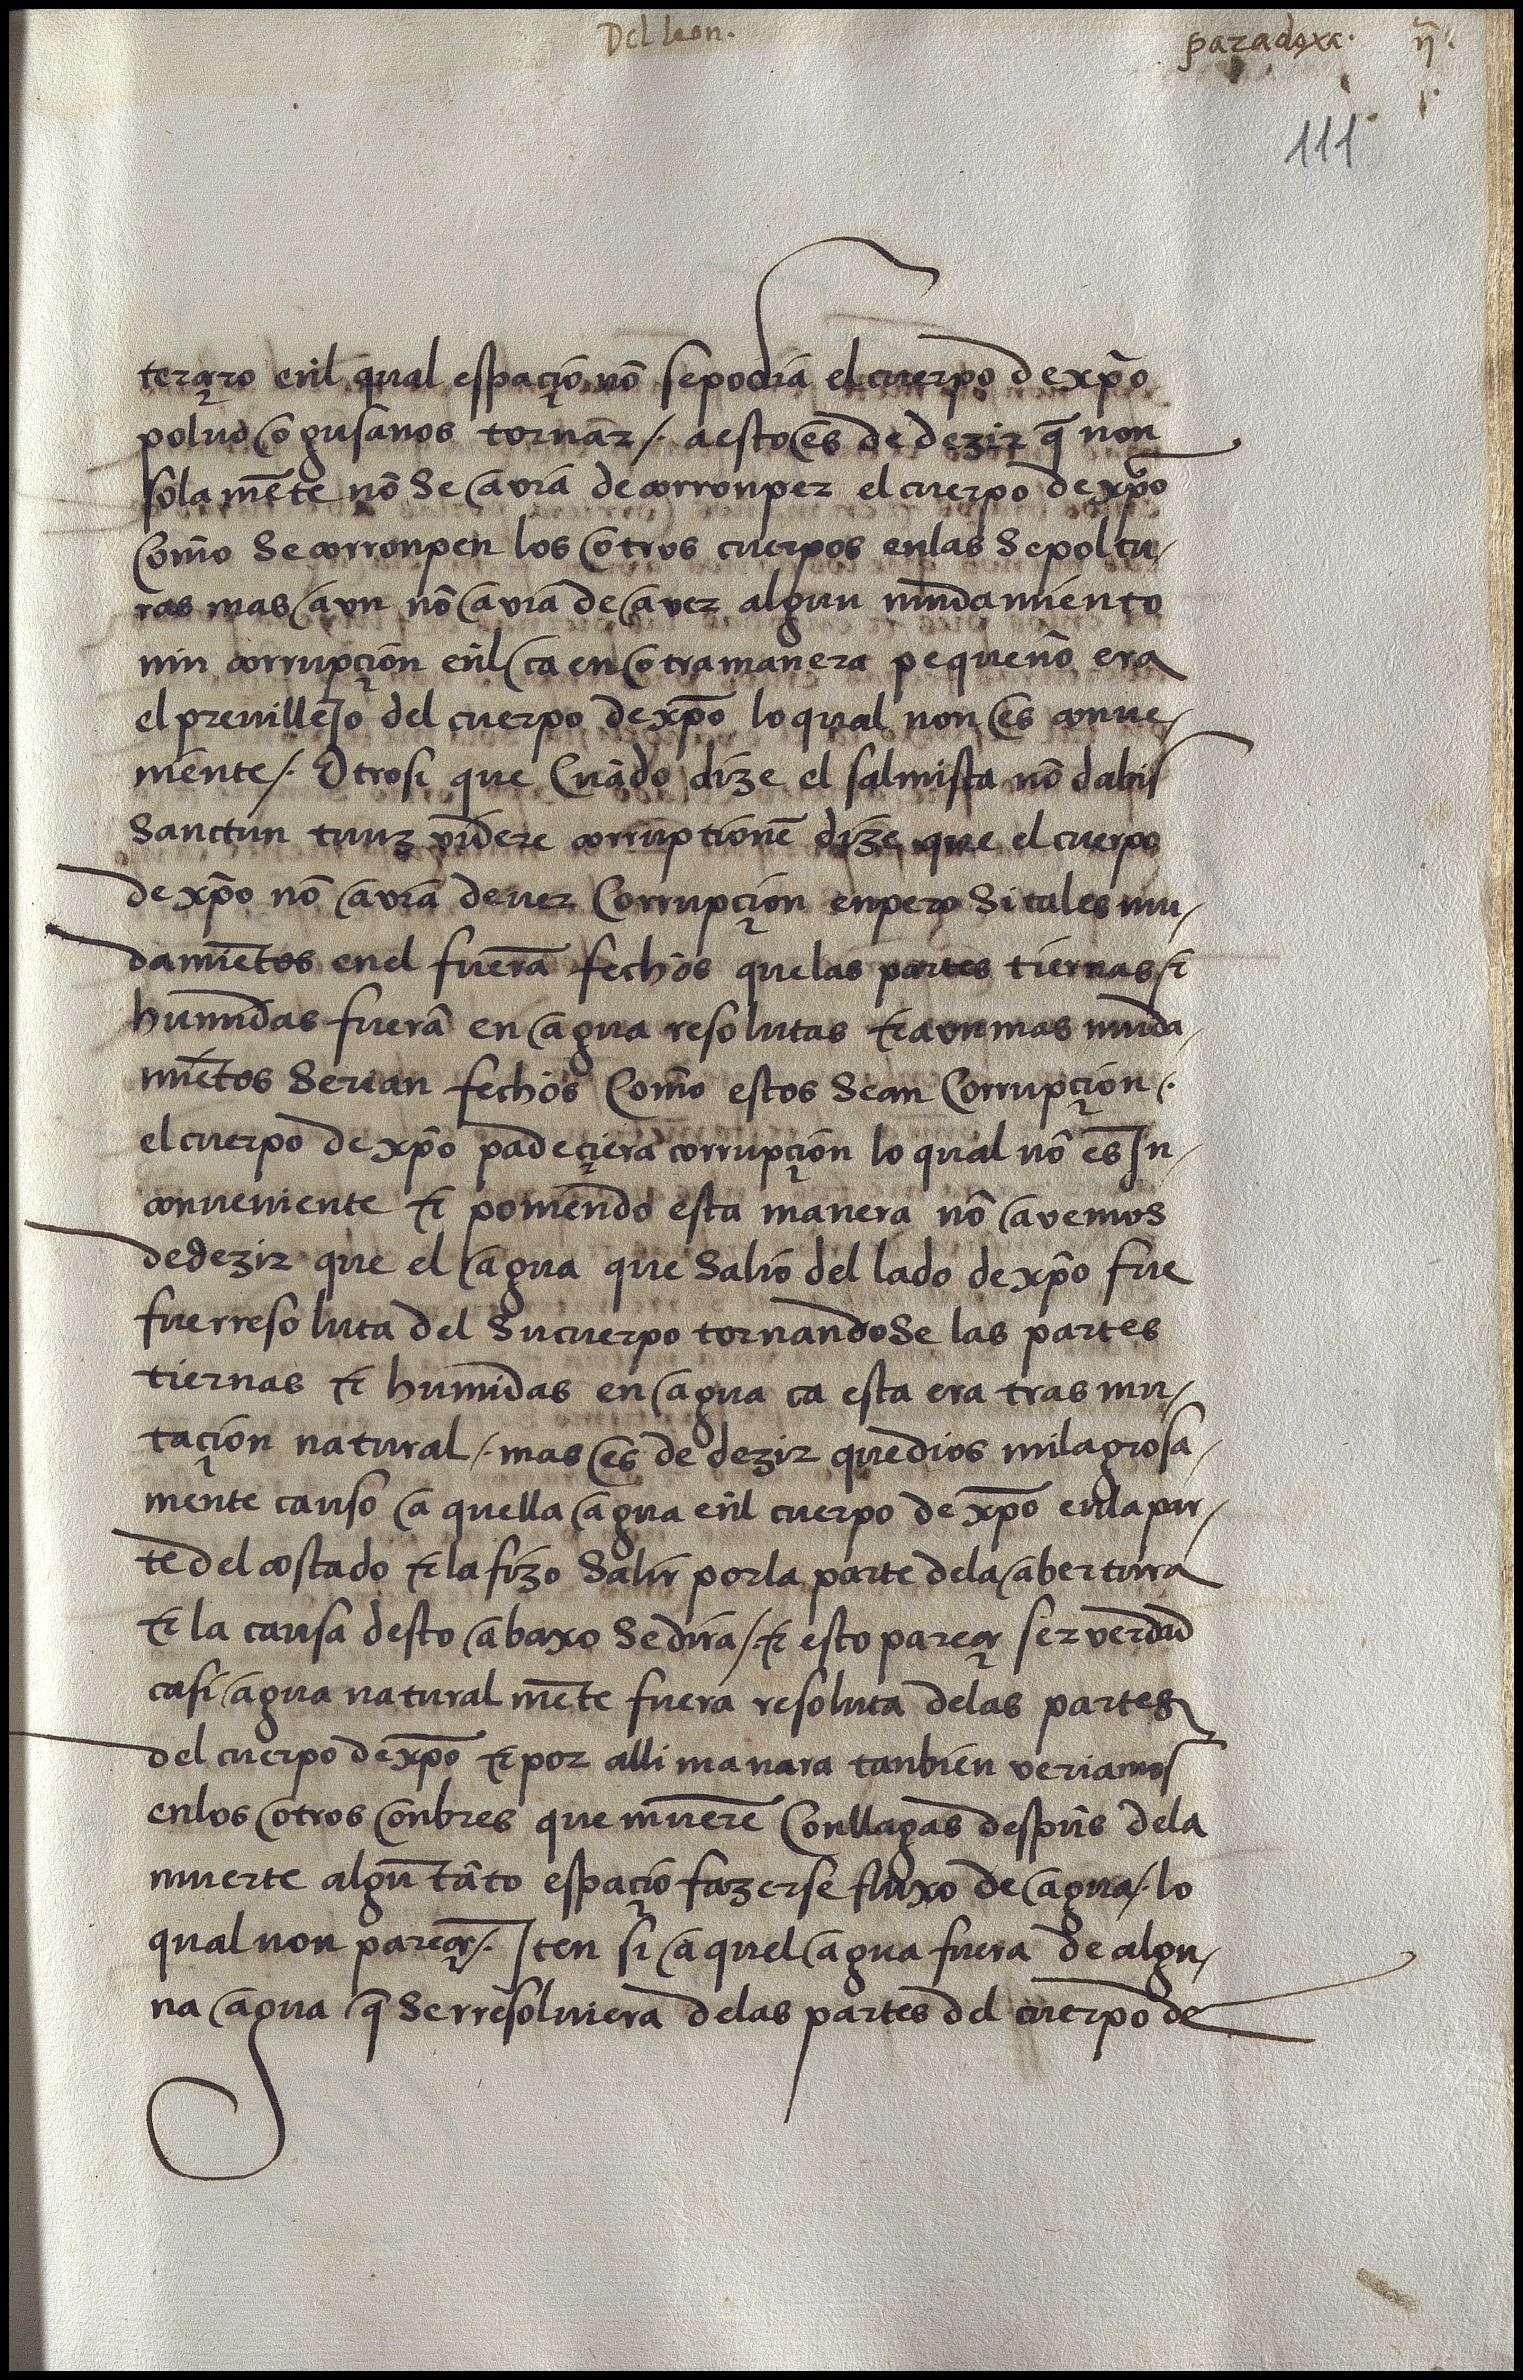 Del leon.
paradoxa. ij.
111
terçero enl qual espaçio nõ se podria el cuerpo de xp̃o
poluo o gusanos tornar /. a esto es de dezir q̃ non
sola mẽte nõ se auia de corronper el cuerpo de xp̃o
como se corronpen los otros cuerpos en las sepoltu-
ras mas avn nõ auia de aver algun mudamiento
nin corrupçion enl ca en otra manera pequeño era
el preuillejo del cuerpo de xp̃o lo qual non es conue-
niente /. Otrosi que cuãdo dize el salmista nõ dabis
sanctun tuuz videre corruptionẽ dize que el cuerpo
de xp̃o nõ auia de uer corrupçion enpero si tales mu-
damiẽtos en el fuerã fechos que las partes tiernas ⁊
humidas fuerã en agua resolutas ⁊ avn mas muda-
miẽtos serian fechos como estos sean corrupçion /.
el cuerpo de xp̃o padeçiera corrupçion lo qual nõ es In-
conueniente ⁊ poniendo esta manera nõ avemos
de dezir que el agua que salio del lado de xp̃o fue
fue rresoluta del su cuerpo tornandose las partes
tiernas ⁊ humidas en agua ca esta era tras mu-
taçion natural /. mas es de dezir que dios milagrosa-
mente causo a quella agua enl cuerpo de xp̃o en la par-
te del costado ⁊ la fizo salir por la parte de la abertura
⁊ la causa desto abaxo se dira /. ⁊ esto pareçe ser verdad
ca si agua natural mẽte fuera resoluta de las partes
del cuerpo de xp̃o ⁊ por alli manara tanbien veriamos
en los otros onbres que muerẽ con llagas despũs de la
muerte algũ tãto espaçio fazerse fluxo de agua /. lo
qual non pareçe /. Iten si a quel agua fuera de algu-
na agua q̃ se rresoluiera de las partes del cuerpo de